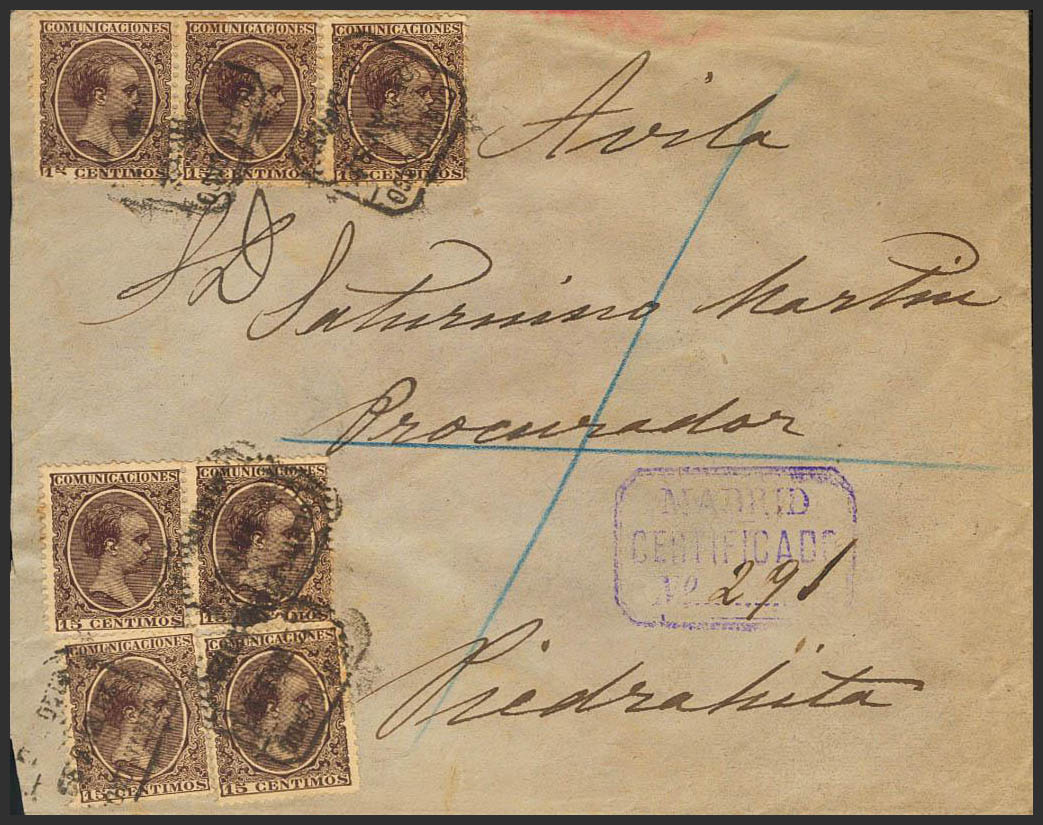 COMUNICACIONES COMUNICACIONES COMUNICACIONES
15 CENTIMOS 15 CENTIMOS 15 CENTIMOS
Avila
Sr D Saturnino Martin
Procurador
COMUNICACIONES COMUNICACIONES
15 CENTIMOS 15
MADRID
CERTIFICADO
Nº 291
COMUNICACIONES COMUNICACIONES
15 CENTIMOS 15 CENTIMOS
Piedrahita